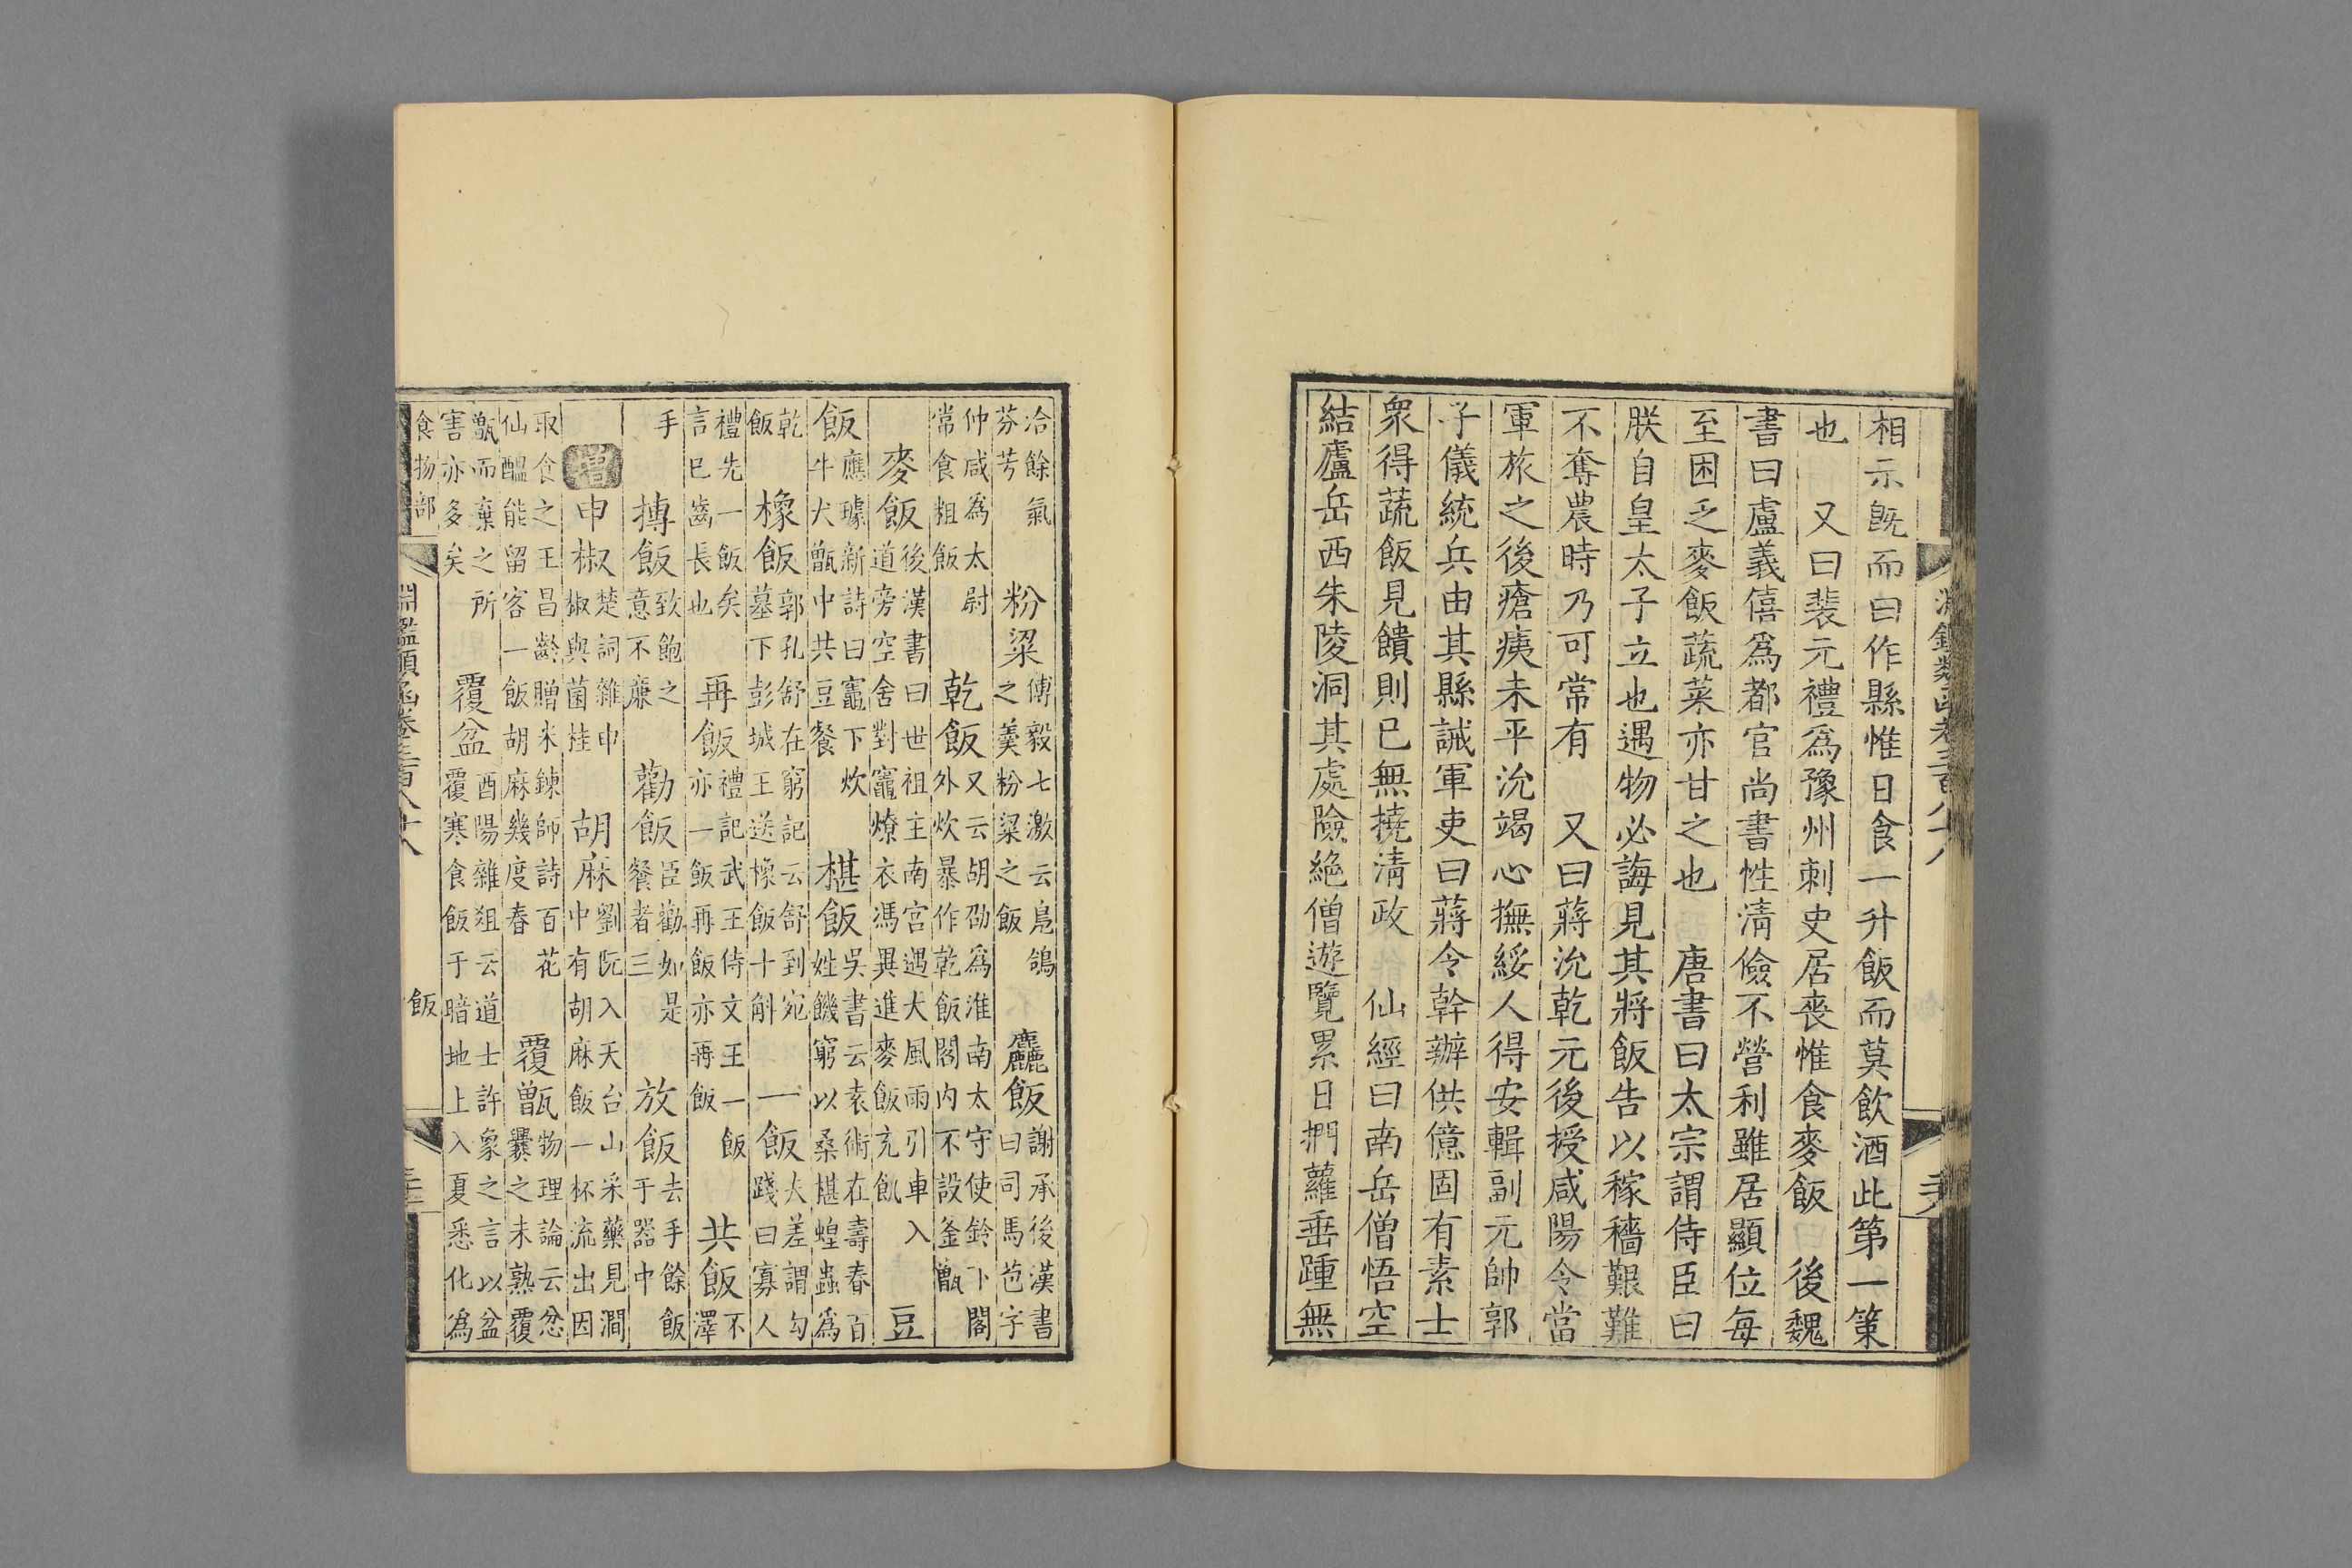 相示旣而曰作縣惟日食一升飯而莫飲酒此第一策
也　又曰裴元禮爲豫州刺史居喪惟食麥飯　後魏
書曰盧義僖爲都官尚書性淸儉不營利雖居顯位每
至困乏麥飯蔬菜亦甘之也　唐書曰太宗謂侍臣曰
朕自皇太子立也遇物必誨見其將飯告以稼穡艱難
不奪農時乃可常有　又曰蔣沇乾元後授咸陽令當
軍旅之後瘡痍未平沇竭心撫綏人得安輯副元帥郭
子儀統兵由其縣誡軍吏曰蔣令幹辦供億固有素士
衆得蔬飯見饋則已無撓淸政　仙經曰南岳僧悟空
結廬岳西朱陵洞其處險絶僧遊覽累日捫蘿垂踵無
洽餘氣
芬芳
粉粱
傅毅七激云鳧鴿
之羹粉粱之飯
麤飯
謝承後漢書
曰司馬苞字
仲咸爲太尉
常食粗飯
乾飯
又云胡劭爲淮南太守使鈴下閣
外炊暴作乾飯閣内不設釜甑
麥飯
後漢書曰世祖主南宮遇大風雨引車入
道旁空舍對竈燎衣馮異進麥飯充飢
豆
飯
應璩新詩曰竈下炊
牛犬甑中共豆餐
椹飯
吳書云袁術在壽春百
姓饑窮以桑椹蝗蟲爲
乾
飯
橡飯
郭孔舒在窮記云舒到宛
墓下彭城王送橡飯十斛
一飯
大差謂勾
踐曰寡人
禮先一飯矣
言巳齒長也
再飯
禮記武王侍文王一飯
亦一飯再飯亦再飯
共飯
不
澤
手
摶飯
致飽之
意不廉
勸飯
臣勸如是
餐者三
放飯
去手餘飯
于器中
增
申椒
楚詞雜申
椒與菌桂
胡麻
劉阮入天台山采藥見澗
中有胡麻飯一杯流出因
取食之王昌齡贈朱鍊師詩百花
仙醖能留客一飯胡麻幾度春
覆甑
物理論云忿
爨之未熟覆
甑而棄之所
害亦多矣
覆盆
酉陽雜俎云道士許象之言以盆
覆寒食飯于暗地上入夏悉化爲
食物部
淵鑑類函卷三百八十八
飯